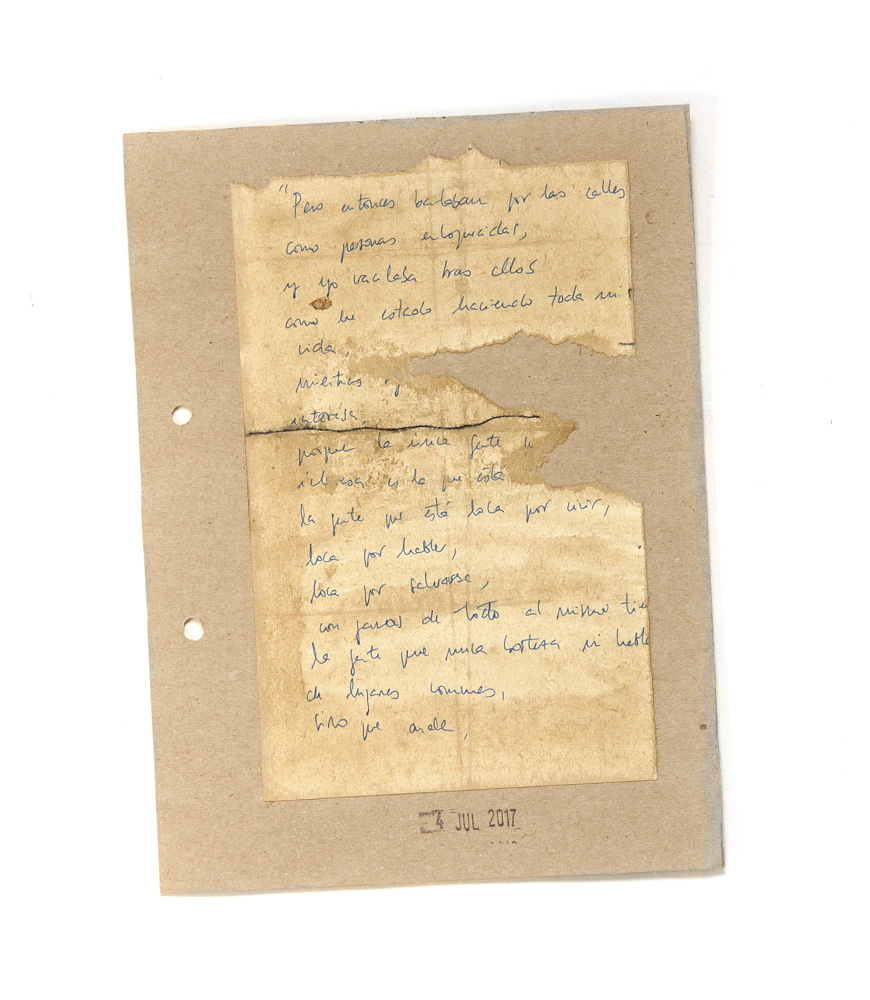 "Pero entonces bailaban por las calles
como personas enloquecidas,
y yo vacilaba tras ellos
como he estado haciendo toda mi
vida,
mientras
interesa,
porque la única gente
interesa es la que está
la gente que está loca por vivir,
loca por hablar,
loca por salvarse,
con ganas de todo al mismo tie
la gente que nunca bosteza ni habla
de lugares comunes,
sino que arde,
4 JUL 2017